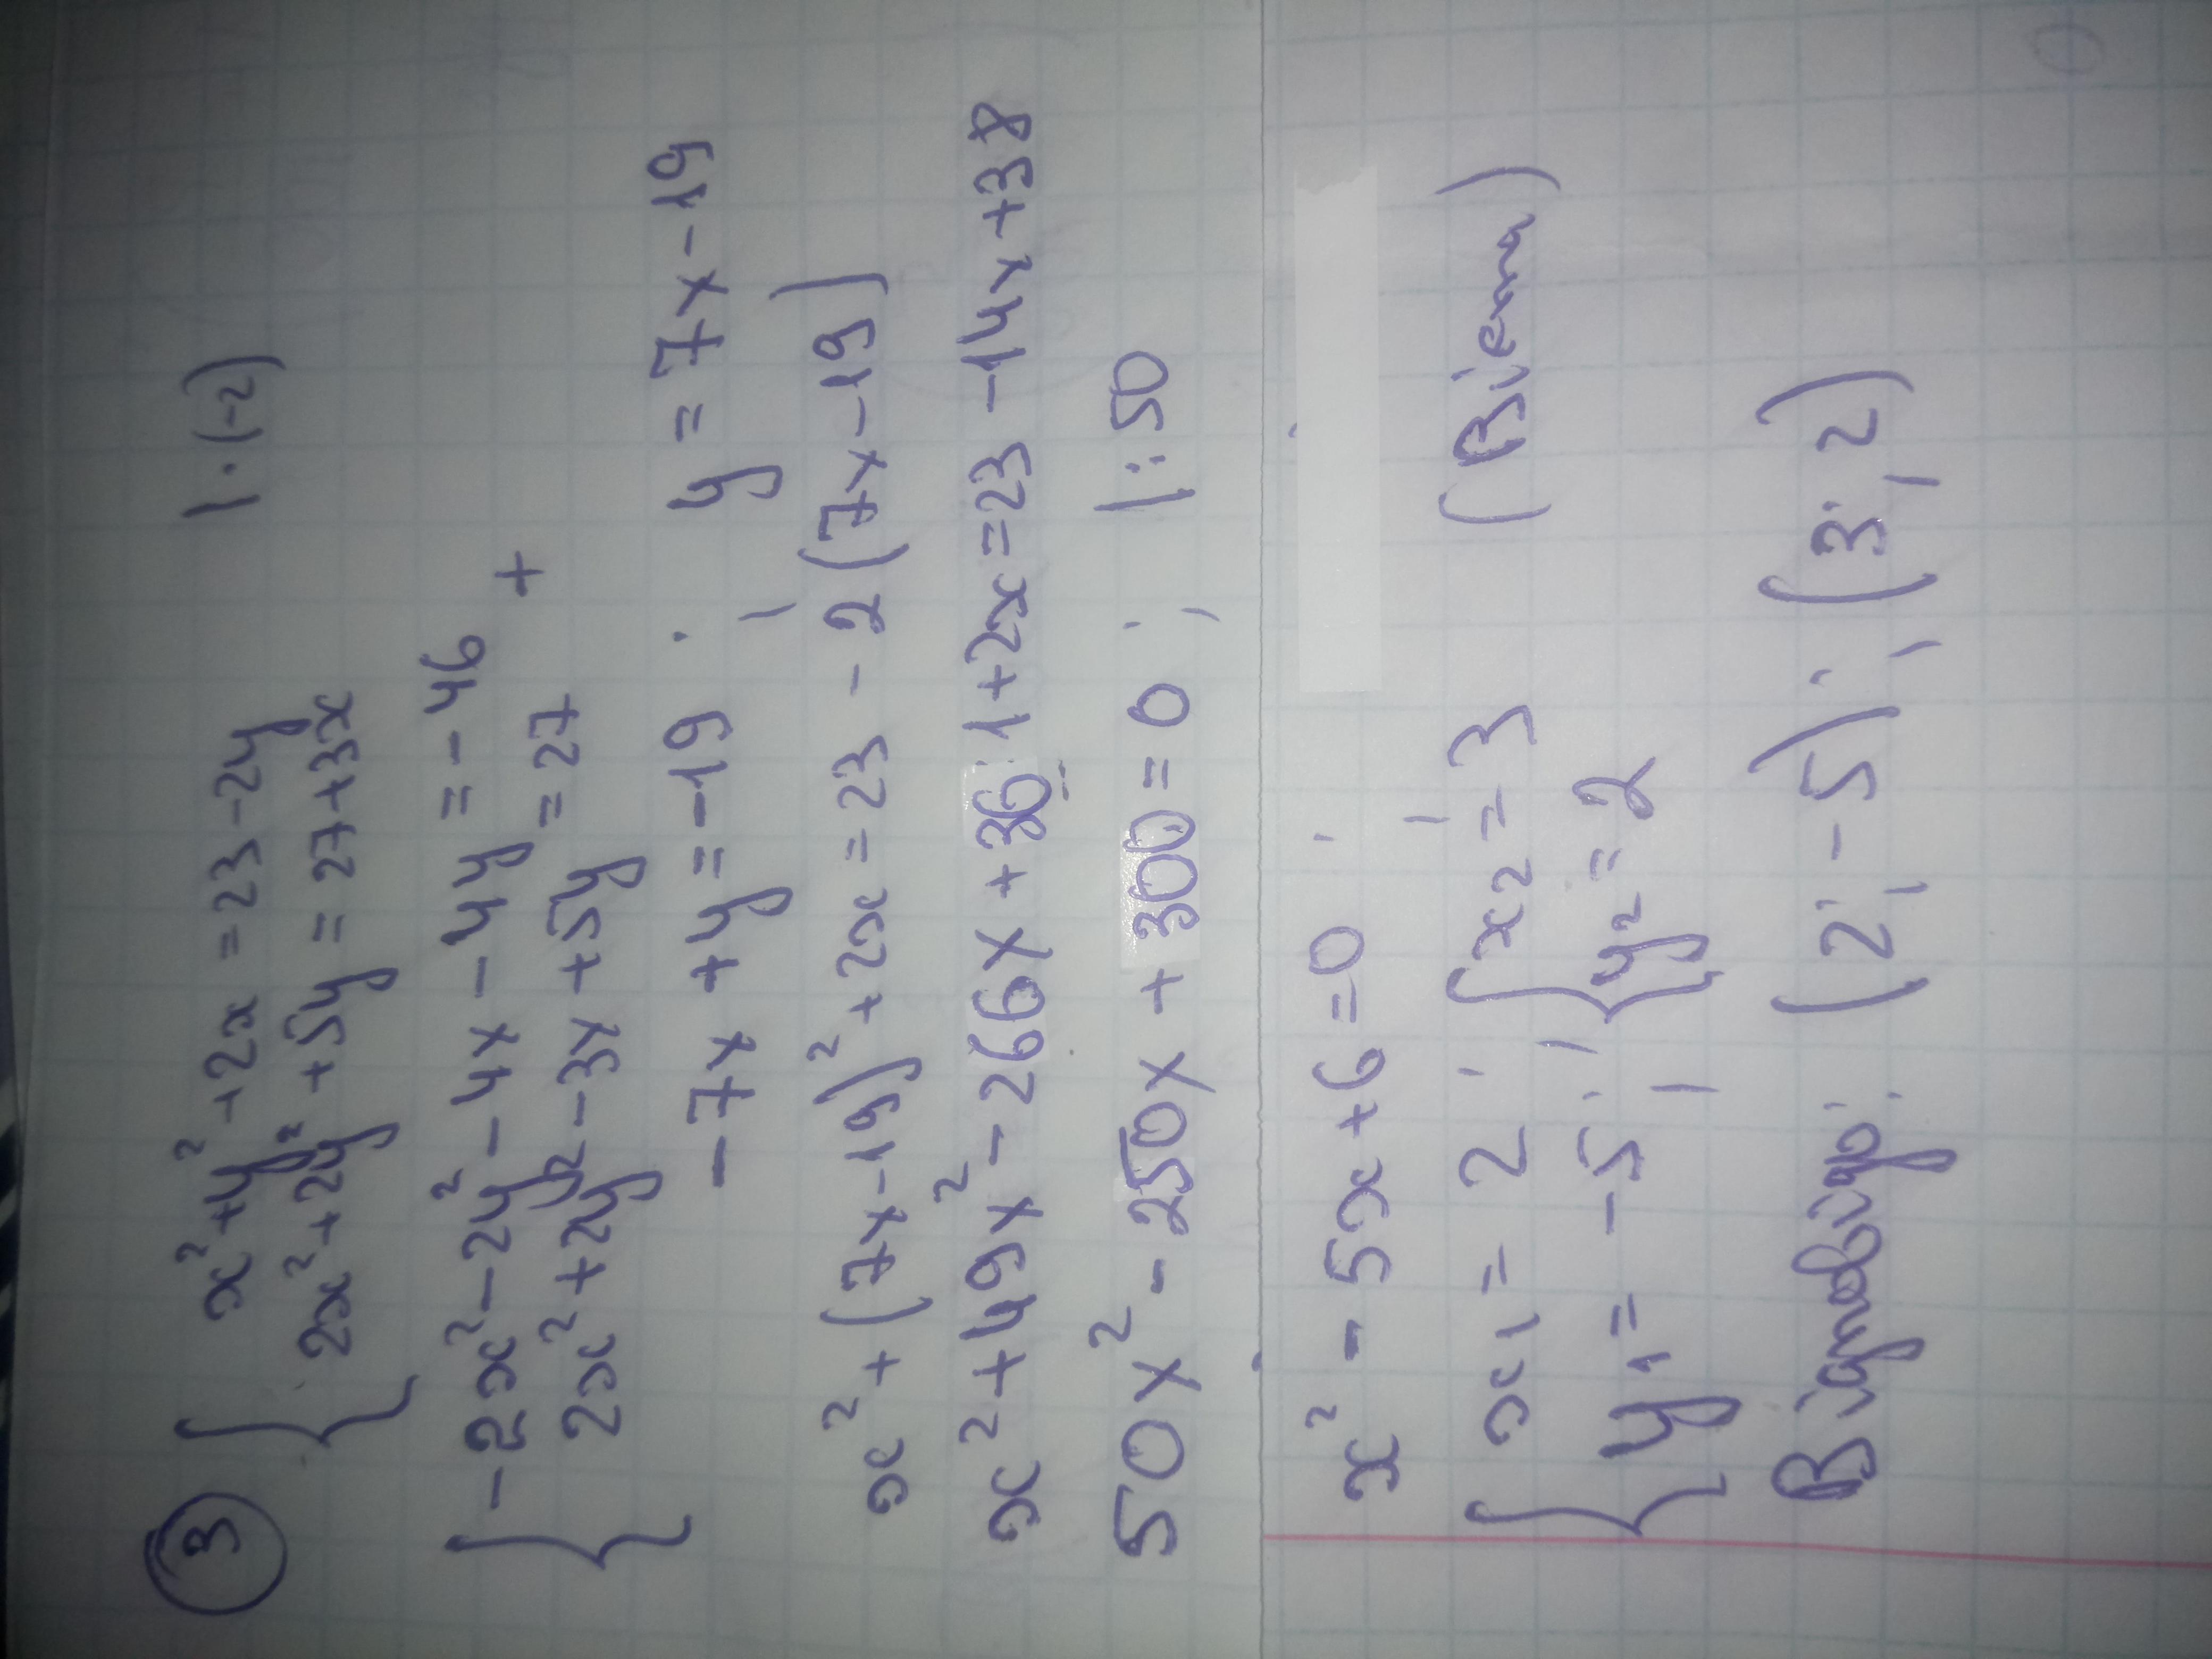 ③ { x² + y² + 2x = 23 - 2y |·(-2)
2x² + 2y² + 5y = 27 + 3x
{ -2x² - 2y² - 4x - 4y = -46 +
2x² + 2y² - 3x + 5y = 27
-7x + y = -19; y = 7x - 19
x² + (7x - 19)² + 2x = 23 - 2(7x - 19)
x² + 49x² - 266x + 361 + 2x = 23 - 14x + 38
50x² - 250x + 300 = 0; |:50
x² - 5x + 6 = 0; (Вієта)
{ x₁ = 2; { x₂ = 3
y₁ = -5; y₂ = 2
Відповідь: (2; -5); (3; 2)